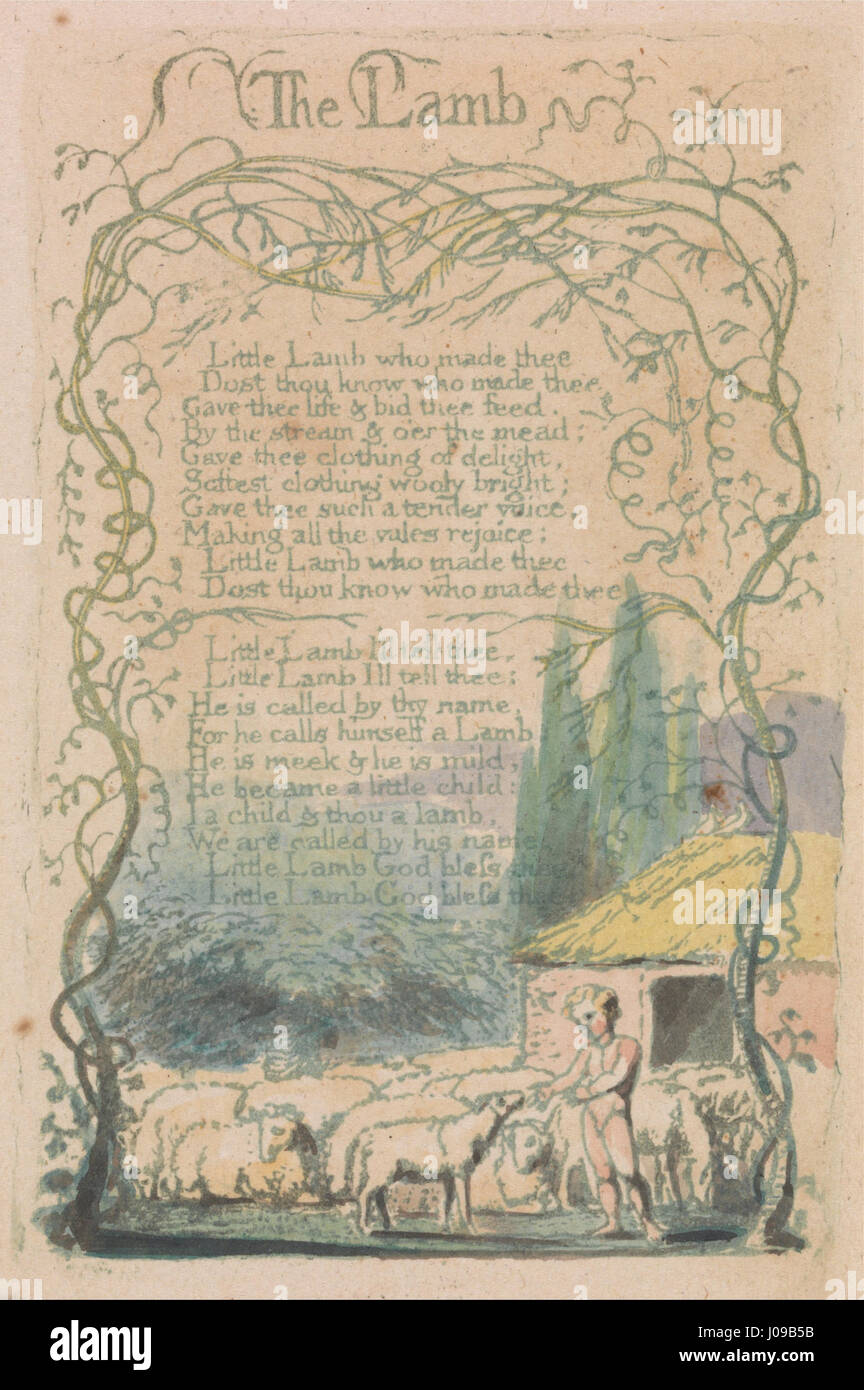 The Lamb
alamy
Little Lamb who made thee
Dost thou know who made thee
Gave thee life & bid thee feed.
By the stream & o'er the mead;
Gave thee clothing of delight,
Softest clothing wooly bright;
Gave thee such a tender voice,
Making all the vales rejoice:
Little Lamb who made thee
Dost thou know who made thee
Little Lamb I'll tell thee,
Little Lamb I'll tell thee;
He is called by thy name,
For he calls himself a Lamb:
He is meek & he is mild,
He became a little child:
I a child & thou a lamb,
We are called by his name.
Little Lamb God bleſs thee.
Little Lamb God bleſs thee.
alamy
alamy
Image ID: J09B5B
www.alamy.com